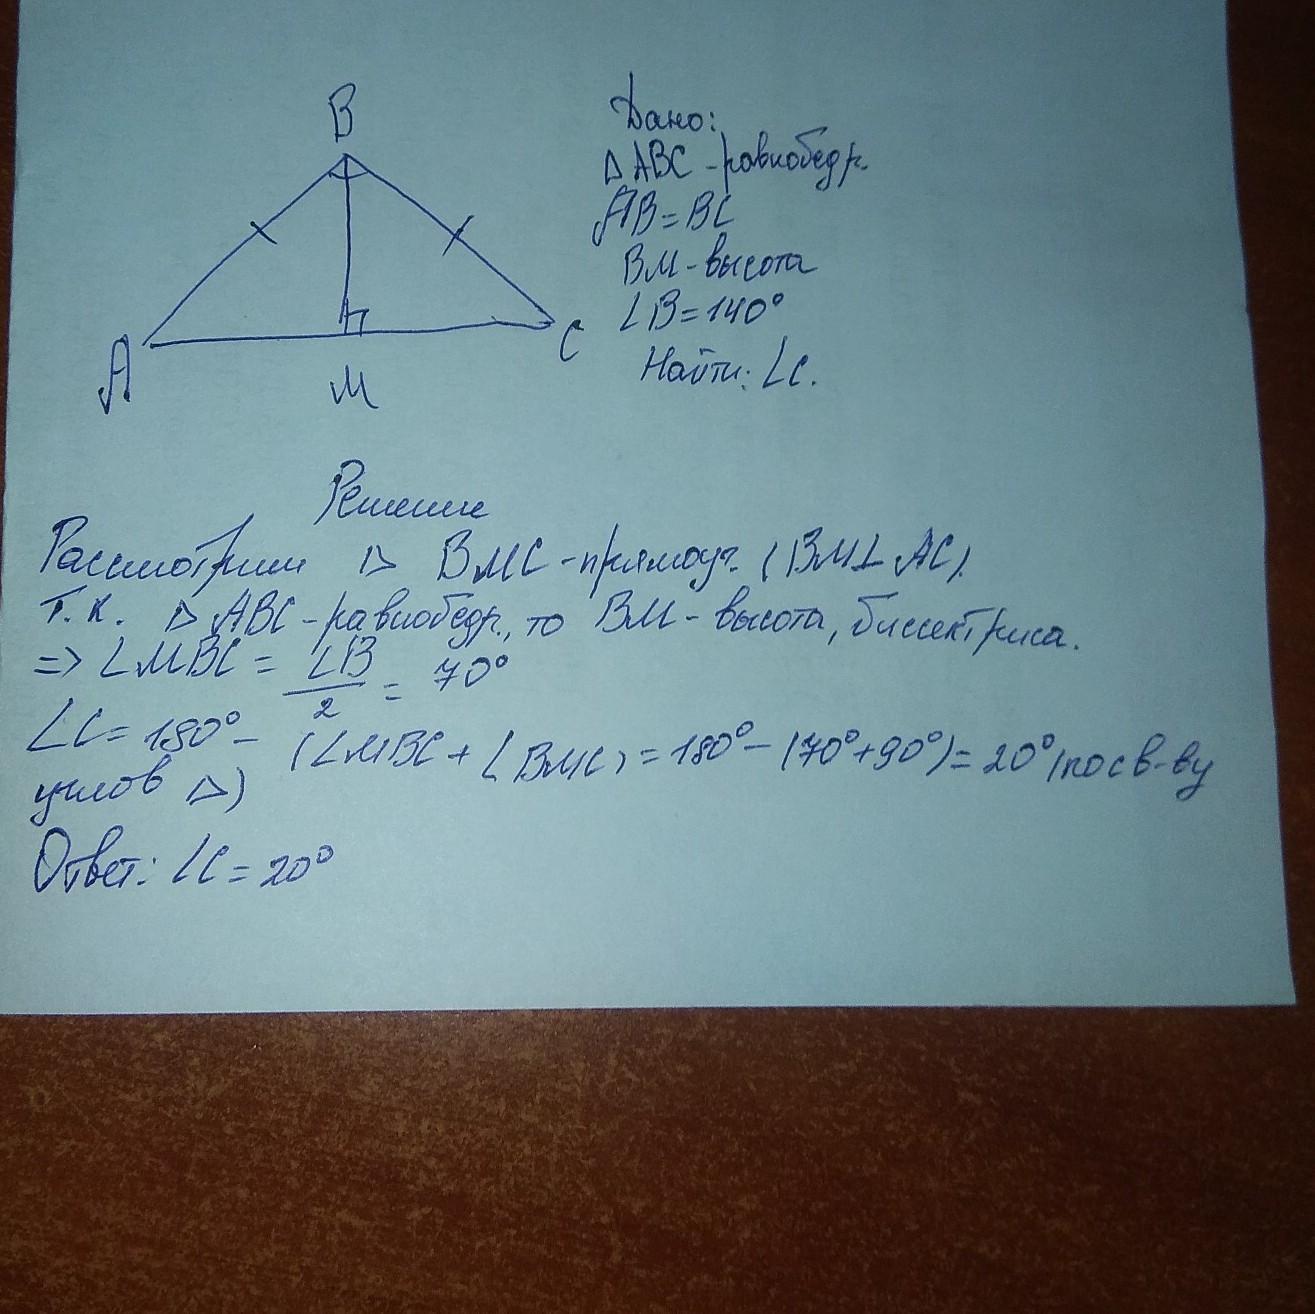 B
A
M
C
Дано:
Δ ABC - равнобедр.
AB = BC
BM - высота
∠B = 140°
Найти: ∠C.
Решение
Рассмотрим Δ BMC - прямоуг. (BM⊥AC).
Т.к. Δ ABC - равнобедр., то BM - высота, биссектриса.
=> ∠MBC = ∠B/2 = 70°
∠C = 180° - (∠MBC + ∠BMC) = 180° - (70° + 90°) = 20° (по св-ву
углов Δ)
Ответ: ∠C = 20°